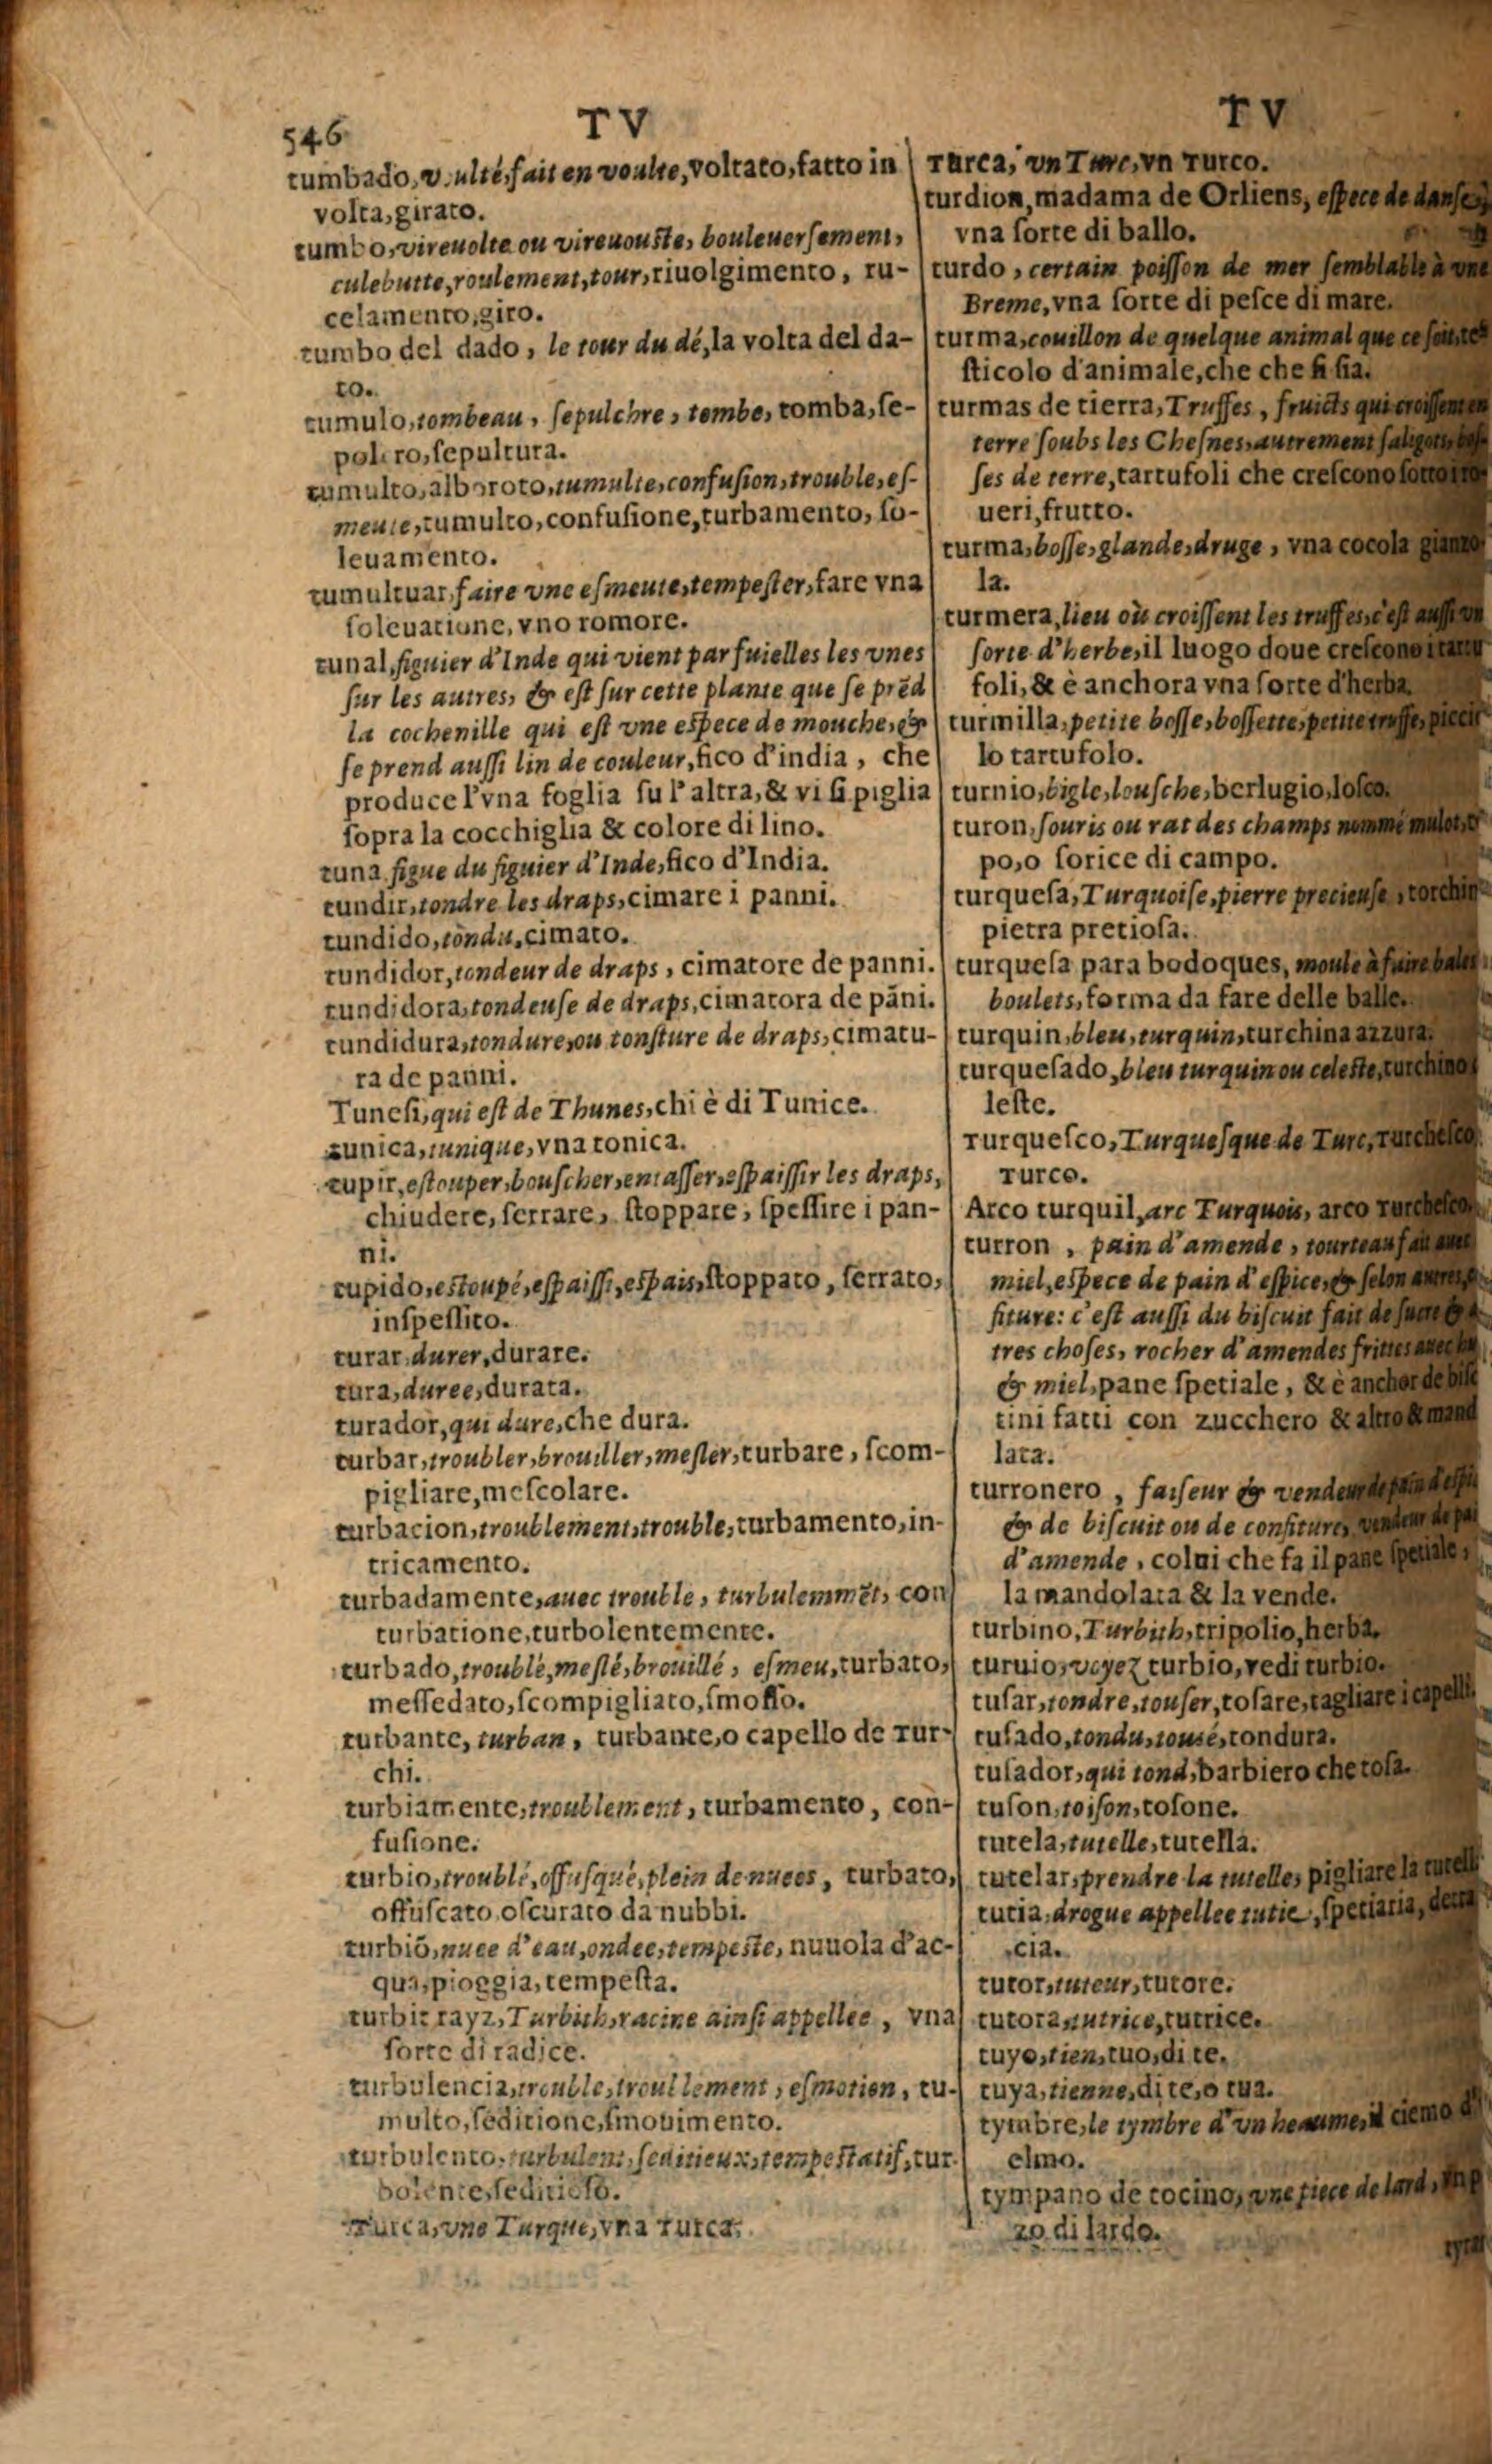 546
TV
TV
tumbado, v.ulté, fait en voulte, voltato, fatto in
volta, girato.
tumbo, vireuolte ou vireuouste, bouleuersement,
culebutte, roulement, tour, riuolgimento, ru-
celamento, giro.
tumbo del dado, le tour du dé, la volta del da-
to.
tumulo, tombeau, sepulchre, tombe, tomba, se-
polcro, sepultura.
tumulto, alboroto, tumulte, confusion, trouble, es-
meute, tumulto, confusione, turbamento, so-
leuamento.
tumultuar, faire vne esmeute, tempester, fare vna
soleuatione, vno romore.
tunal, figuier d'Inde qui vient par fuielles les vnes
sur les autres, & est sur cette plante que se prēd
la cochenille qui est vne espece de mouche, &
se prend aussi lin de couleur, fico d'india, che
produce l'vna foglia su l'altra, & vi si piglia
sopra la cocchiglia & colore di lino.
tuna figue du figuier d'Inde, fico d'India.
tundir, tondre les draps, cimare i panni.
tundido, tondu, cimato.
tundidor, tondeur de draps, cimatore de panni.
tundidora, tondeuse de draps, cimatora de pāni.
tundidura, tondure, ou tonsture de draps, cimatu-
ra de panni.
Tunesi, qui est de Thunes, chi è di Tunice.
tunica, tunique, vna tonica.
tupir, estouper, bouscher, entasser, espaissir les draps,
chiudere, serrare, stoppare, spessire i pan-
ni.
tupido, estoupé, espaissi, espais, stoppato, serrato,
inspessito.
turar durer, durare.
tura, duree, durata.
turador, qui dure, che dura.
turbar, troubler, brouiller, mesler, turbare, scom-
pigliare, mescolare.
turbacion, troublement, trouble, turbamento, in-
tricamento.
turbadamente, auec trouble, turbulemmēt, con
turbatione, turbolentemente.
turbado, troublè, meslé, brouillé, esmeu, turbato,
messedato, scompigliato, smosso.
turbante, turban, turbante, o capello de Tur-
chi.
turbiamente, troublement, turbamento, con-
fusione.
turbio, troublé, offusqué, plein de nuees, turbato,
offuscato oscurato da nubbi.
turbiō, nuee d'eau, ondee, tempeste, nuuola d'ac-
qua, pioggia, tempesta.
turbit rayz, Turbith, racine ainsi appellee, vna
sorte di radice.
turbulencia, trouble, troublement, esmotion, tu-
multo, seditione, smouimento.
turbulento, turbulent, seditieux, tempestatif, tur-
bolente, seditioso.
Turca, vne Turque, vna Turca.
Turca, vn Turc, vn Turco.
turdion, madama de Orliens, espece de danse,
vna sorte di ballo.
turdo, certain poisson de mer semblable à vne
Breme, vna sorte di pesce di mare.
turma, couillon de quelque animal que ce soit, te-
sticolo d'animale, che che si sia.
turmas de tierra, Truffes, fruicts qui croissent en
terre soubs les Chesnes, autrement saligots, bos-
ses de terre, tartufoli che crescono sotto i ro-
ueri, frutto.
turma, bosse, glande, druge, vna cocola gianzo-
la.
turmera, lieu où croissent les truffes, c'est aussi vn
sorte d'herbe, il luogo doue crescono i tartu
foli, & è anchora vna sorte d'herba.
turmilla, petite bosse, bossette, petite truffe, picciu
lo tartufolo.
turnio, bigle, lousche, berlugio, losco.
turon, souris ou rat des champs nommé mulot, to
po, o sorice di campo.
turquesa, Turquoise, pierre precieuse, torchin
pietra pretiosa.
turquesa para bodoques, moule à faire bales
boulets, forma da fare delle balle.
turquin, bleu, turquin, turchina azzura.
turquesado, bleu turquin ou celeste, turchino
leste.
Turquesco, Turquesque de Turc, Turchesco
Turco.
Arco turquil, arc Turquois, arco Turchesco.
turron, pain d'amende, tourteau fait auec
miel, espece de pain d'espice, & selon autres,
fiture: c'est aussi du biscuit fait de sucre &
tres choses, rocher d'amendes frittes auec
& miel, pane spetiale, & è anchor de bisc
tini fatti con zucchero & altro & mand
lata.
turronero, faiseur & vendeur de pain d'espi
& de biscuit ou de confiture, vendeur de pai
d'amende, colui che fa il pane spetiale,
la mandolata & la vende.
turbino, Turbith, tripolio, herba.
turuio, voyez turbio, vedi turbio.
tusar, tondre, touser, tosare, tagliare i capelli.
tusado, tondu, tousé, tondura.
tusador, qui tond, barbiero che tosa.
tuson, toison, tosone.
tutela, tutelle, tutella.
tutelar, prendre la tutelle, pigliare la tutell
tutia, drogue appellee tutie, spetiaria, detta
cia.
tutor, tuteur, tutore.
tutora, tutrice, tutrice.
tuyo, tien, tuo, di te.
tuya, tienne, di te, o tua.
tymbre, le tymbre d'vn heaume, il ciemo d'
elmo.
tympano de tocino, vne piece de lard,
zo di lardo.